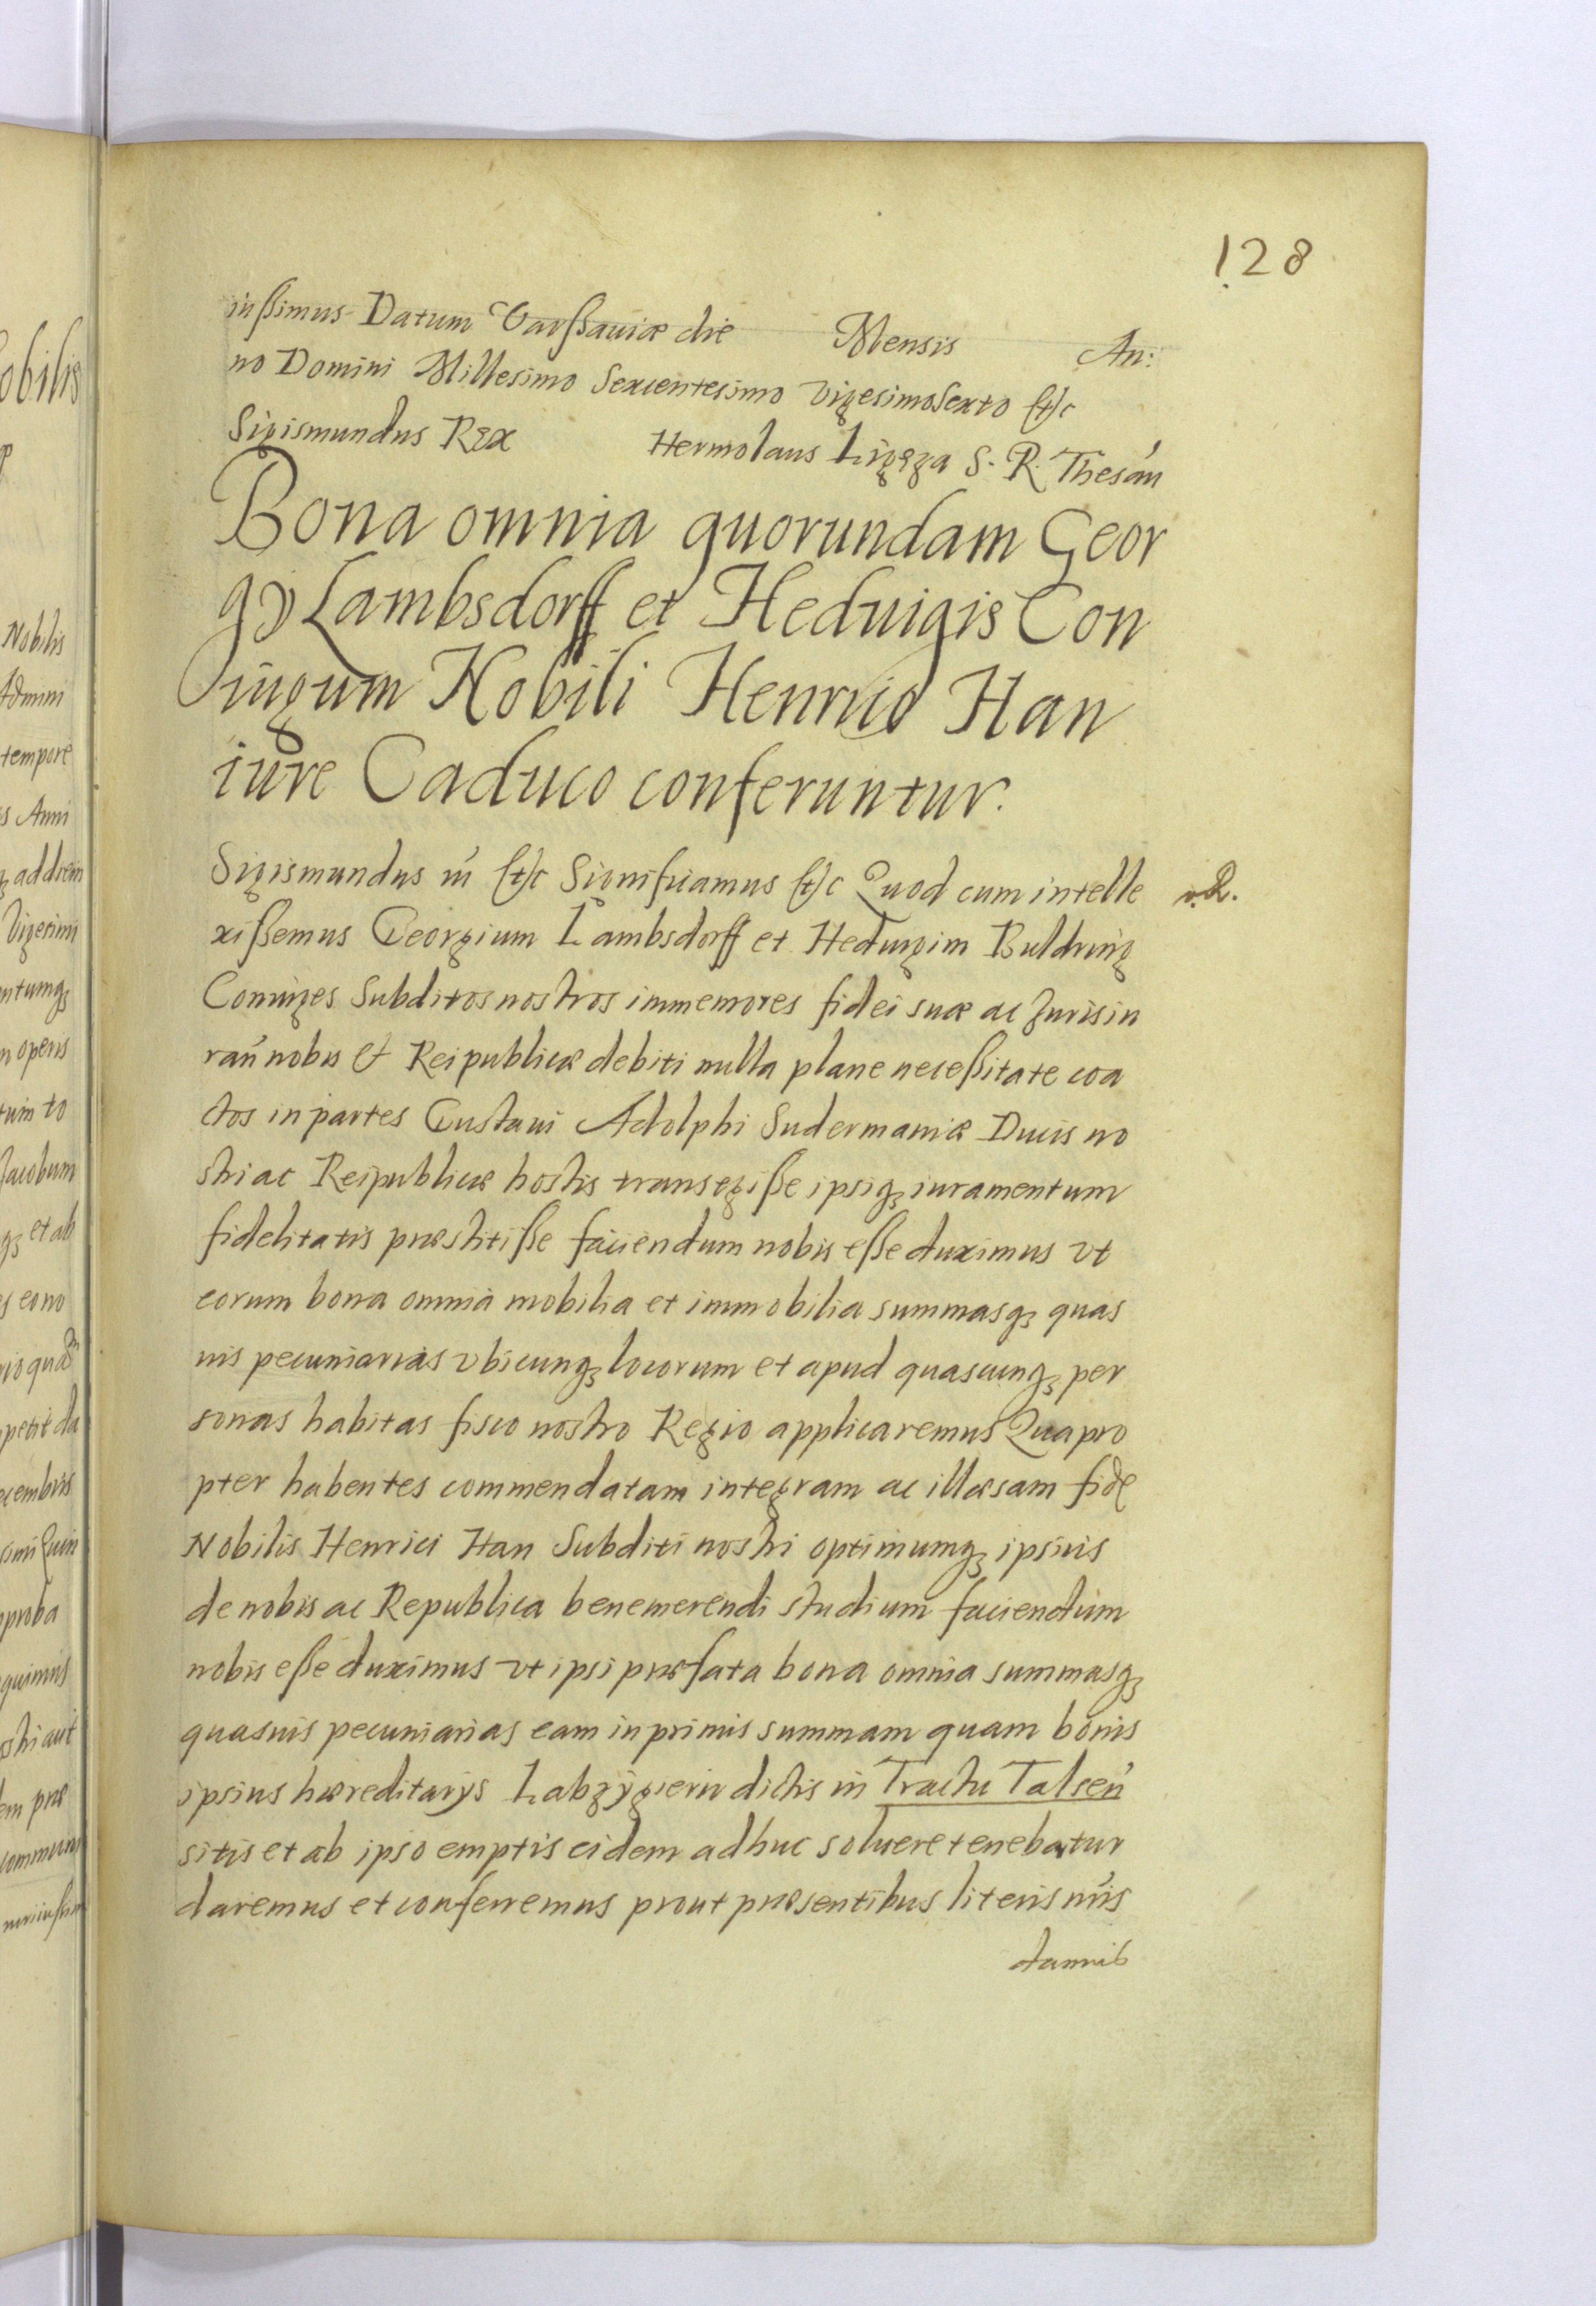 128
iussimus Datum Varssaviæ die Mensis An:
no Domini Millesimo Sexcentesimo vigesimosexto etc
Sigismundus Rex Hermolaus Ligęza S. R. Thesau
Bona omnia quorundam Geor
gy Lambsdorff et Heduigis Con
iugum Nobili Henrico Han
iure Caduco conferuntur.
Sigismundus III etc Significamus etc Quod cum intelle
xissemus Georgium Lambsdorff et Heduigim Buldring
Coniuges Subditos nostros immemores fidei suæ ac Jurisiu
ran nobis et Reipublicæ debiti nulla plane necessitate coa
ctos in partes Gustaui Adolphi Sudermaniæ Ducis no
stri ac Reipublicæ hostis transegisse ipsiq; iuramentum
fidelitatis præstitisse faciendum nobis esse duximus vt
eorum bona omnia mobilia et immobilia summasq; quas
uis pecuniarias vbicunq; locorum et apud quascunq; per
sonas habitas fisco nostro Regio applicaremus Quapro
pter habentes commendatam integram ac illæsam fidē
Nobilis Henrici Han Subditi nostri optimumq; ipsius
de nobis ac Republica benemerendi studium faciendum
nobis esse duximus vt ipsi præfata bona omnia summasq;
quasuis pecuniarias eam in primis summam quam bonis
ipsius hæreditarys Labzÿgieriv dictis in Tractu Talsen
sitis et ab ipso emptis eidem adhuc soluere tenebatur
daremus et conferremus prout præsentibus literis nris
damus
nobilis
Nobilis
Admini
tempore
s Anni
q; addrem
Vigesimi
ntumq;
n operis
tum to
Jacobum
q; et ab
s eono
petit da
ecembris
simi Quin
proba
quimus
stri aut
em præ
commun